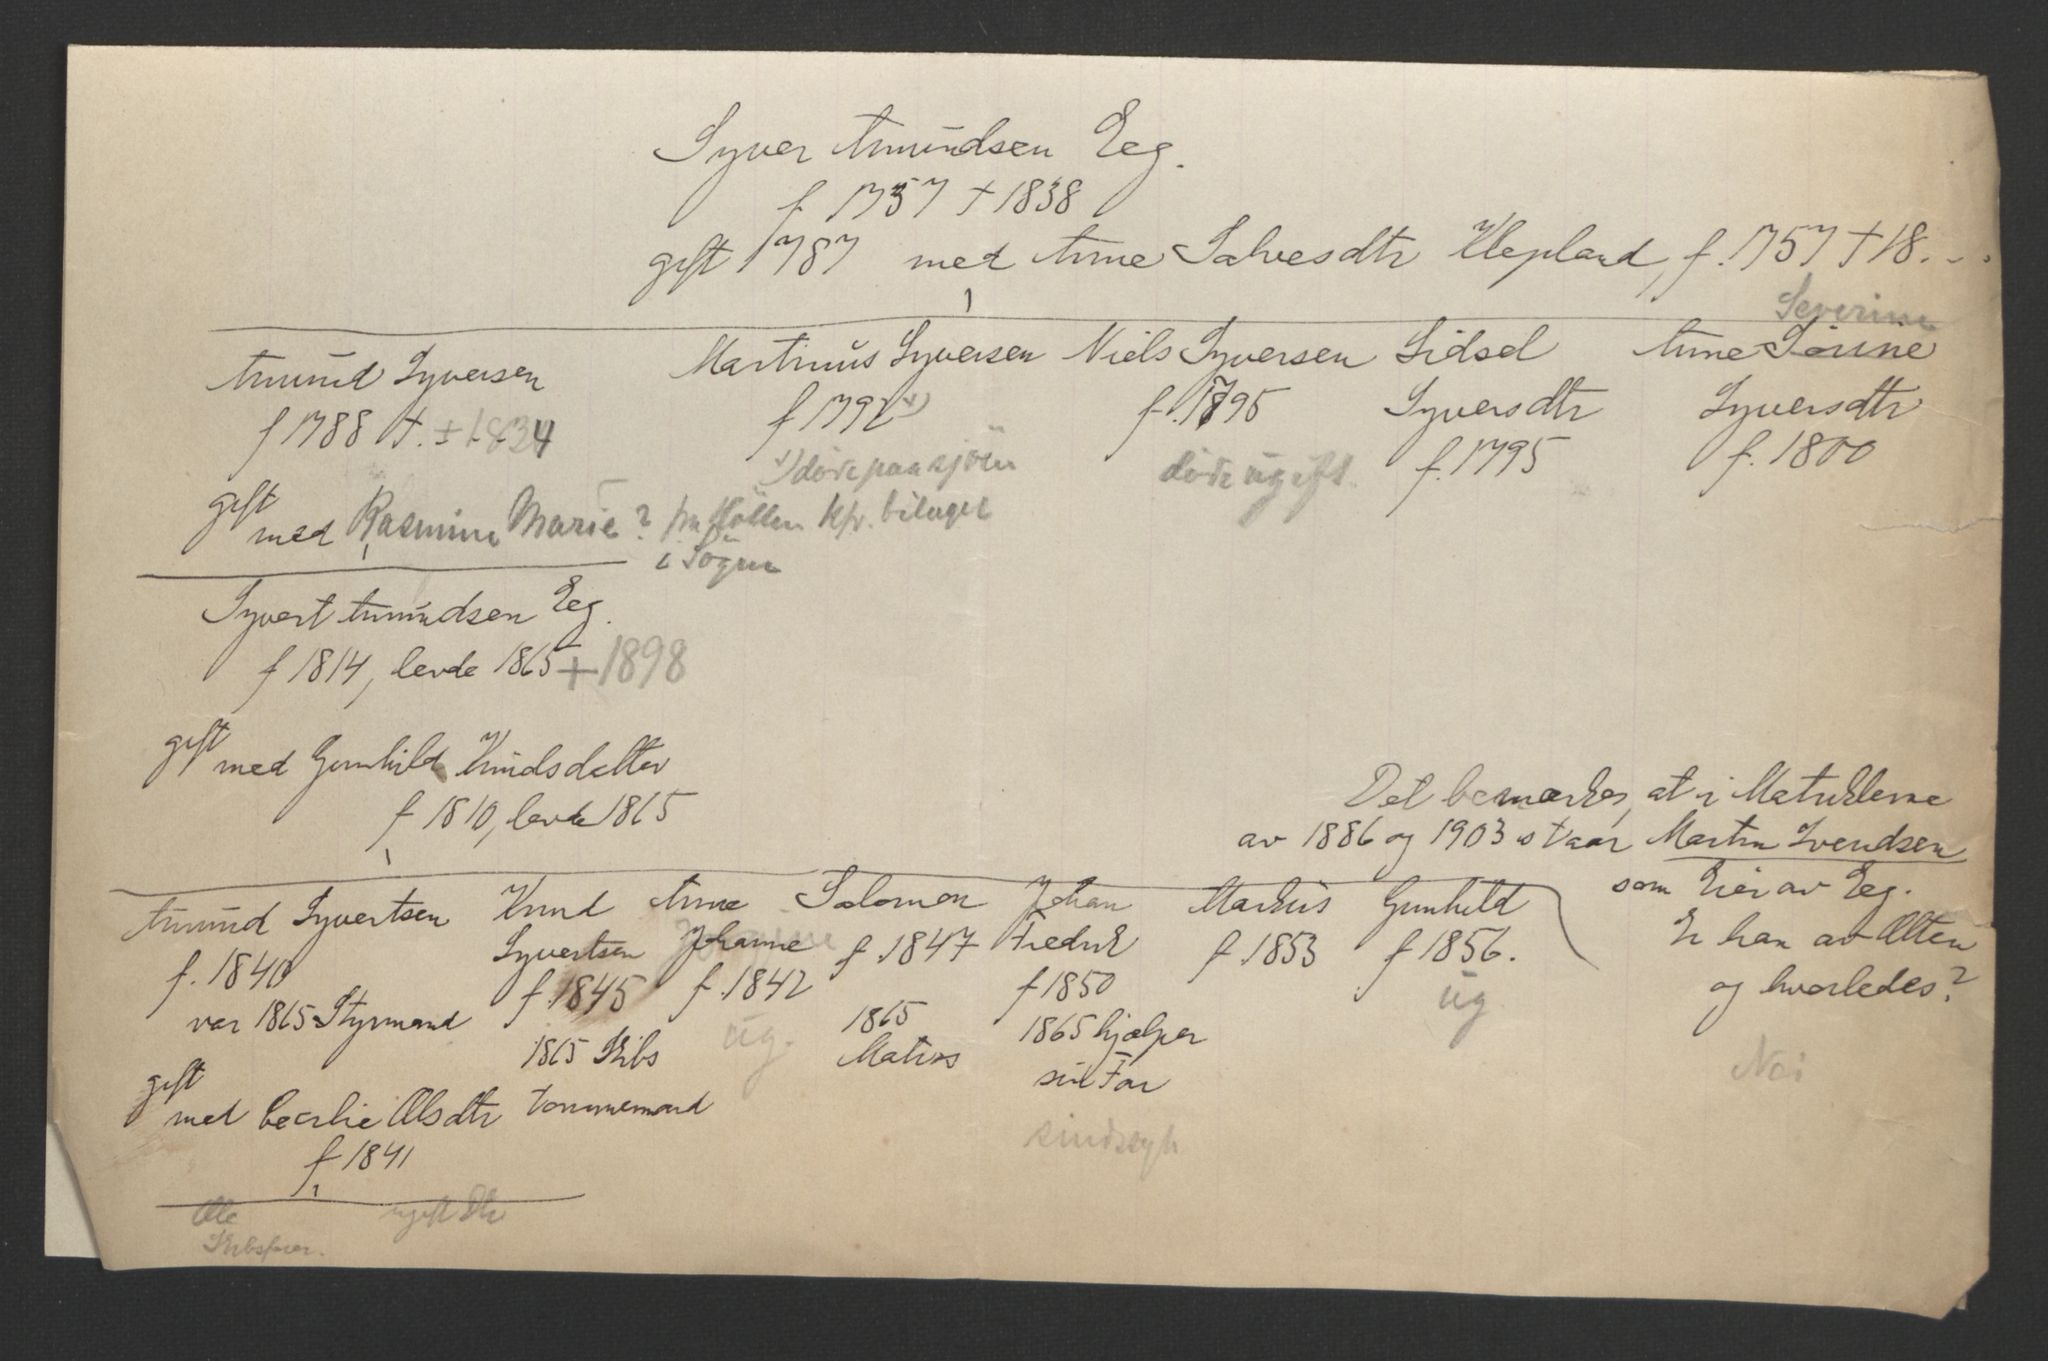 Syver Amundsen Eeg.
f 1757 † 1838
gift 1787 med Anne Salvesdtr Klepland, f. 1757 † 18...
Severine
Amund Syversen
f 1788 †. † 1834
gift
med Rasmine Marie? fra Höllen kfr. bilaget
i Sögne
Martinus Syversen
f 1792 x)
x) döde paa sjöen
Niels Syversen
f. 1795
döde ugift.
Sidsel
Syversdtr
f. 1795
Anne Sörine
Syversdtr
f. 1800
Syvert Amundsen Eeg.
f 1814, levde 1865 + 1898
gift
med Gunhild Knudsdatter
f 1810, levde 1865
Det bemærkes, at i Matriklerne
av 1886 og 1903 staar Martin Svendsen
som Eier av Eeg.
Er han av Ætten
og hvorledes?
Nei
Amund Syvertsen
f. 1840
var 1865 Styrmand
gift
med Cecilie Olsdtr
f 1841
Knud
Syvertsen
f. 1845
1865 Skibs
tømmermand
Anne
Johanne
f. 1842
ug.
Salomon
f. 1847
1865
Matros
Johan
Fredrik
f 1850
1865 hjælper
sin Far
sindssyk
Markus
f. 1853
Gunhild
f 1856.
ug
Ole
Skibsfører.
ugift Dtr